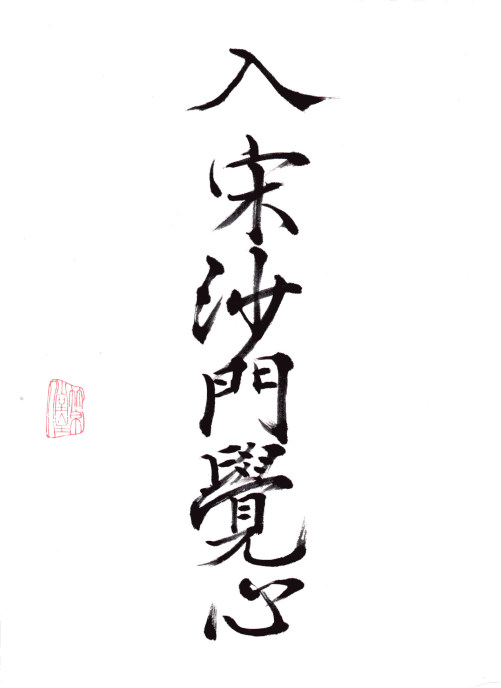 入宋沙門覺心